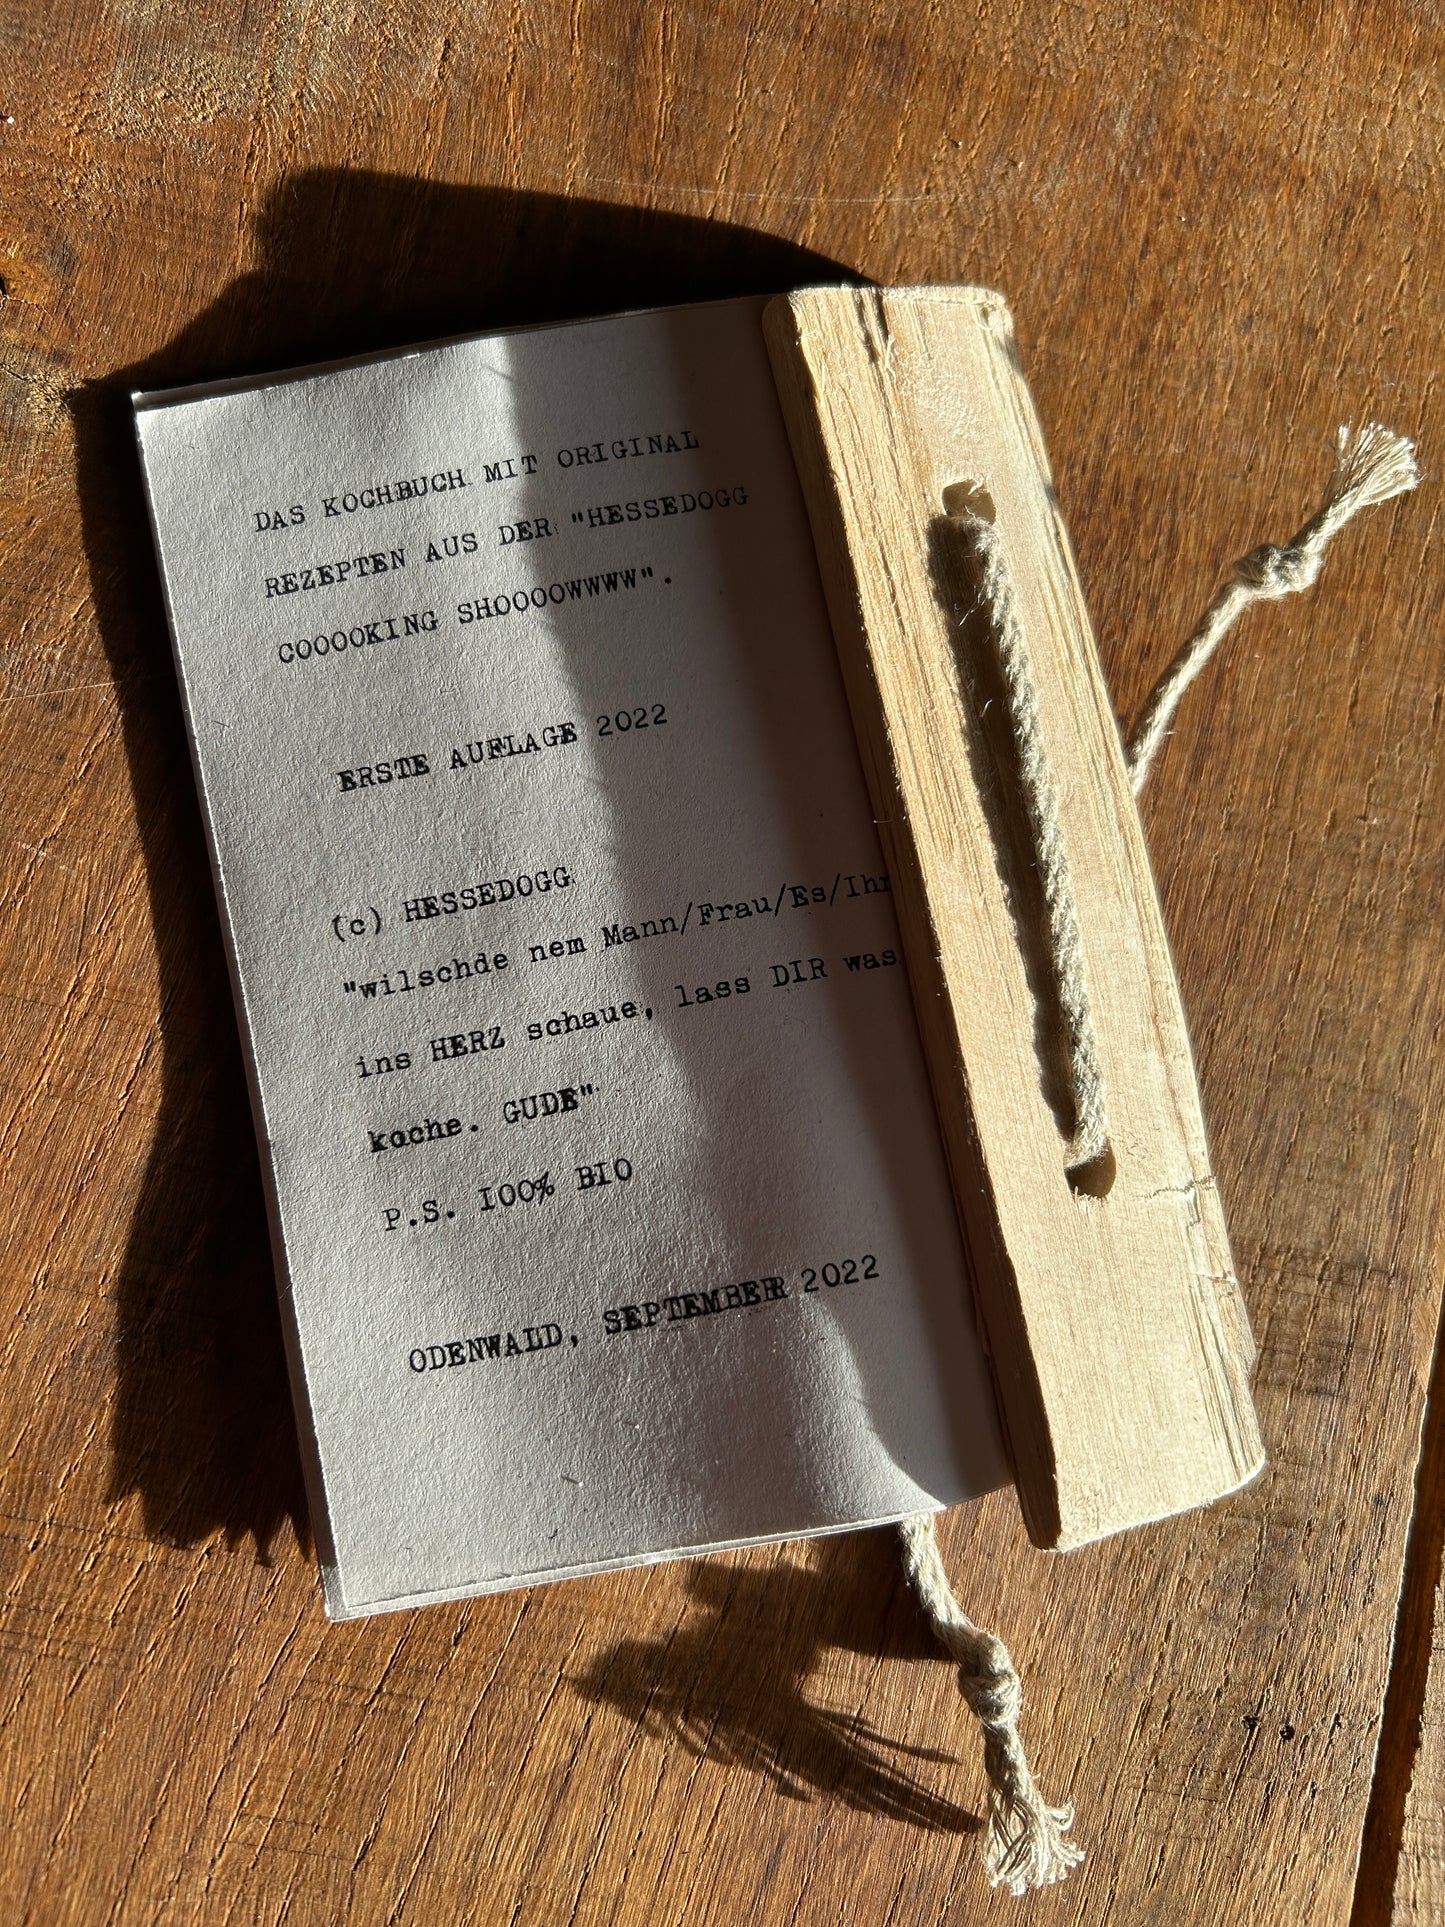 DAS KOCHBUCH MIT ORIGINAL
REZEPTEN AUS DER "HESSEDOGG
COOOOKING SHOOOOWWWW".
ERSTE AUFLAGE 2022
(c) HESSEDOGG
"wilschde nem Mann/Frau/Es/Ihr
ins HERZ schaue, lass DIR was
koche. GUDE"
P.S. 100% BIO
ODENWALD, SEPTEMBER 2022